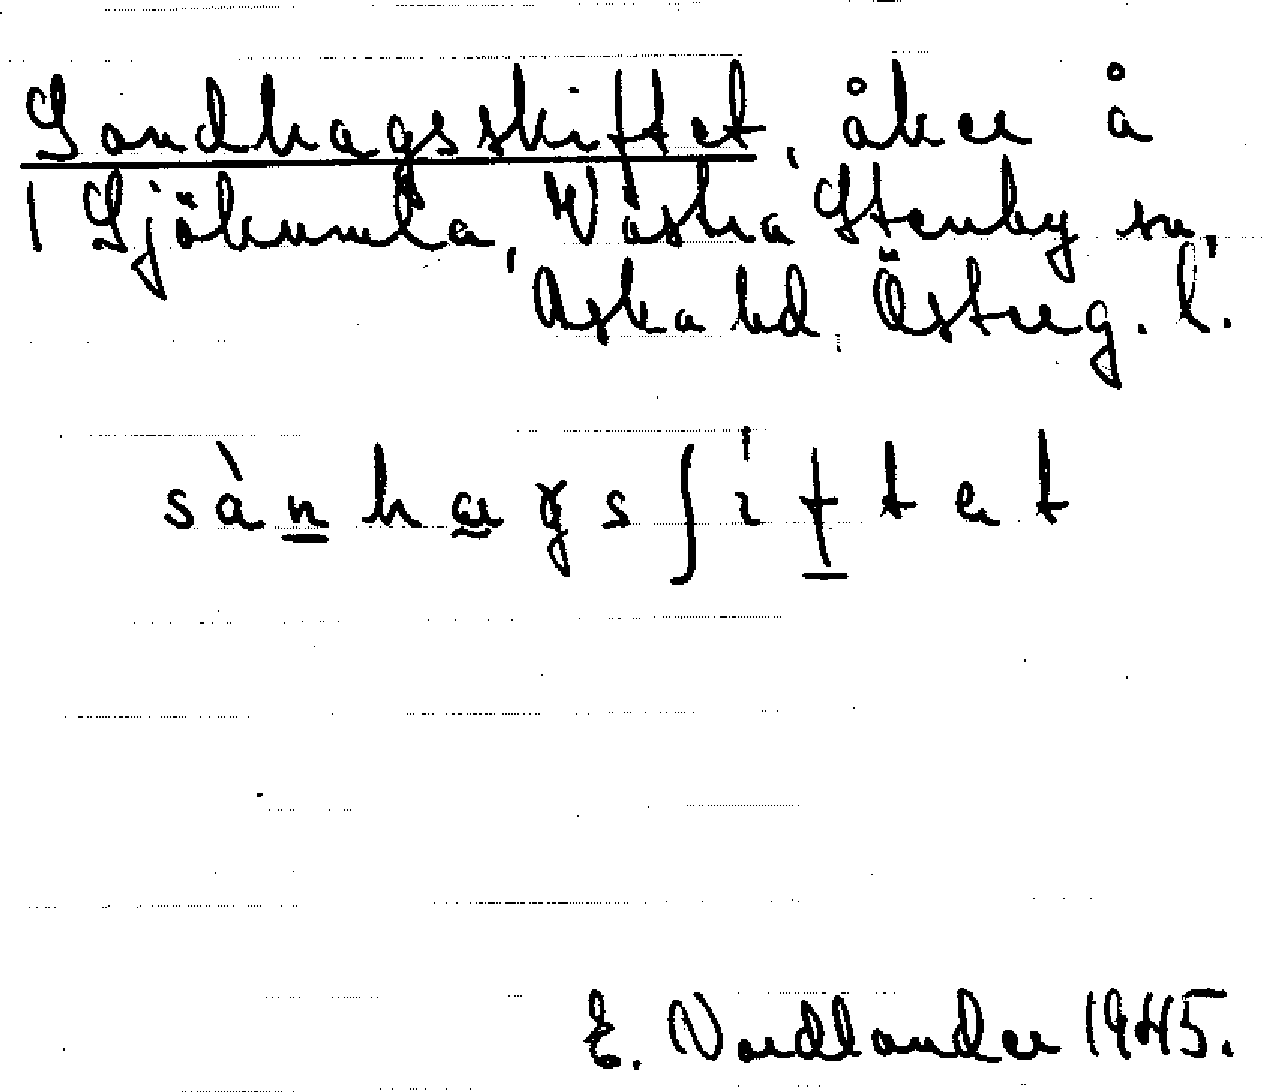 Sandhagsskiftet, åker å
1 Sjökumla, Västra Stenby sn,
Aska hd, Östreg. l.
sànhagsʃiftet
E. Nordlander 1945.